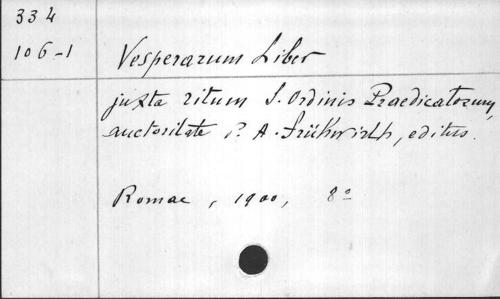 334
106-1
Vesperarum Liber
juxta ritum S. Ordinis Praedicatorum,
auctoritate P. A. Frühwirth, editus.
Romae, 1900, 8º